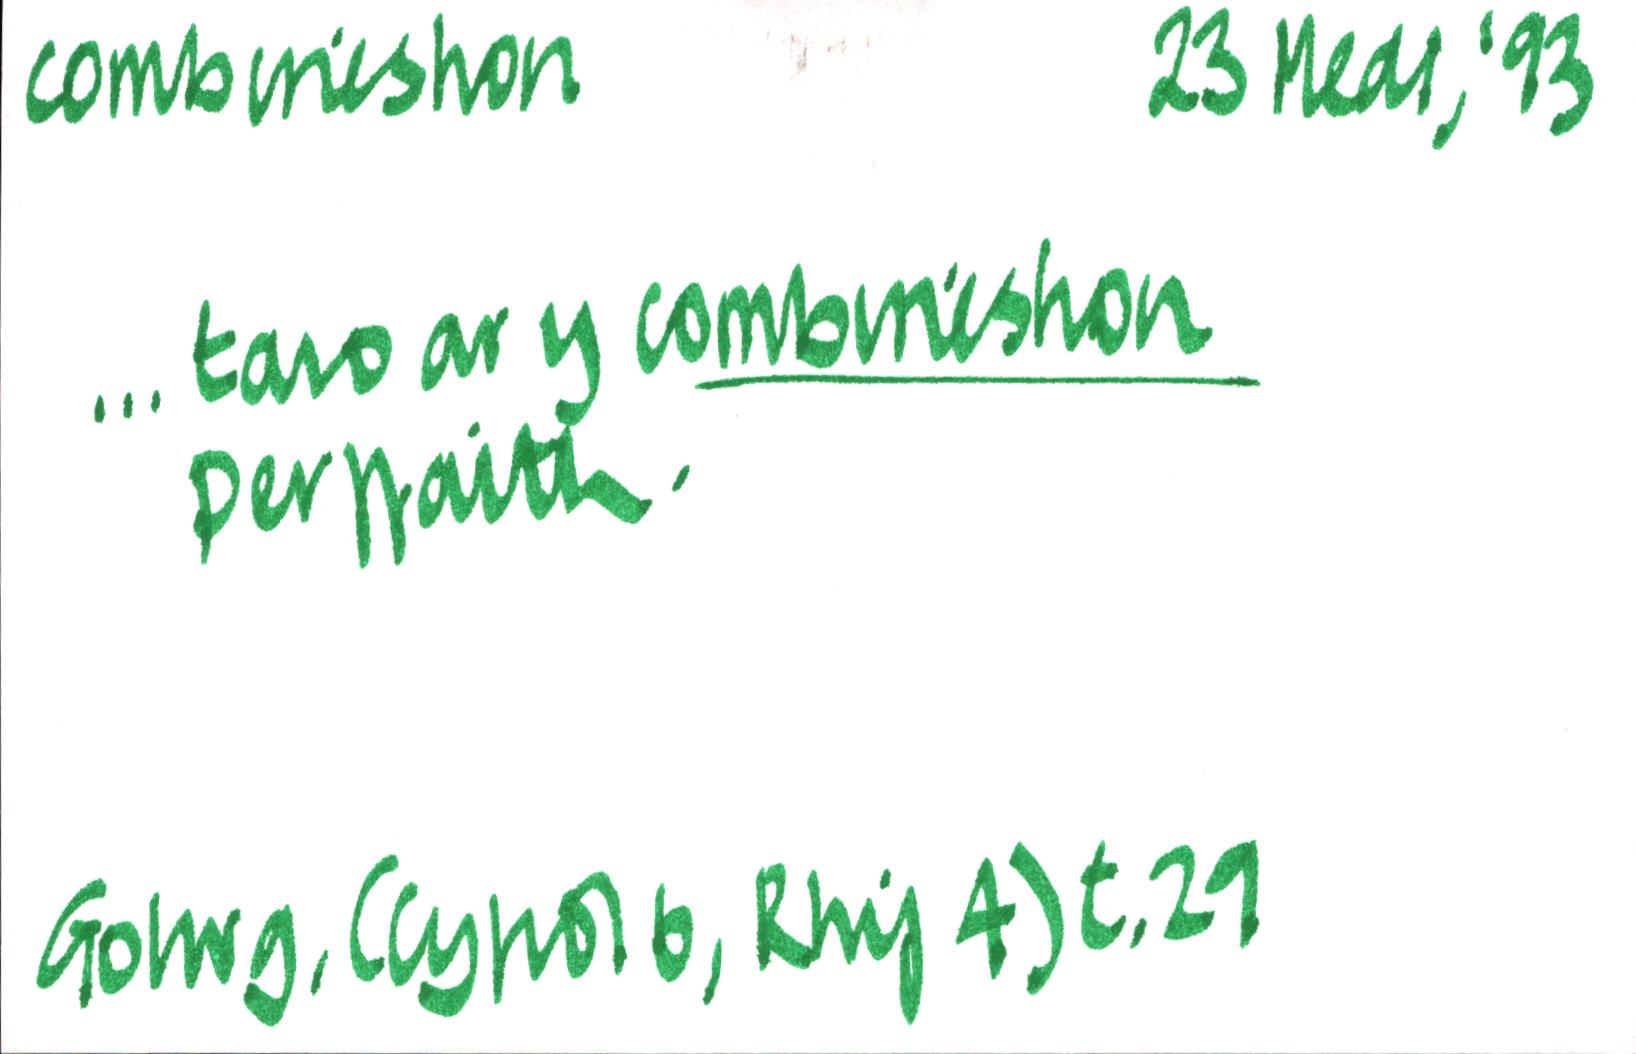 combinieshon 23 Medi, '93
... taro ar y combinieshon
perffaith.
Golwg, (Cyfrol 6, Rhif 4) t. 29